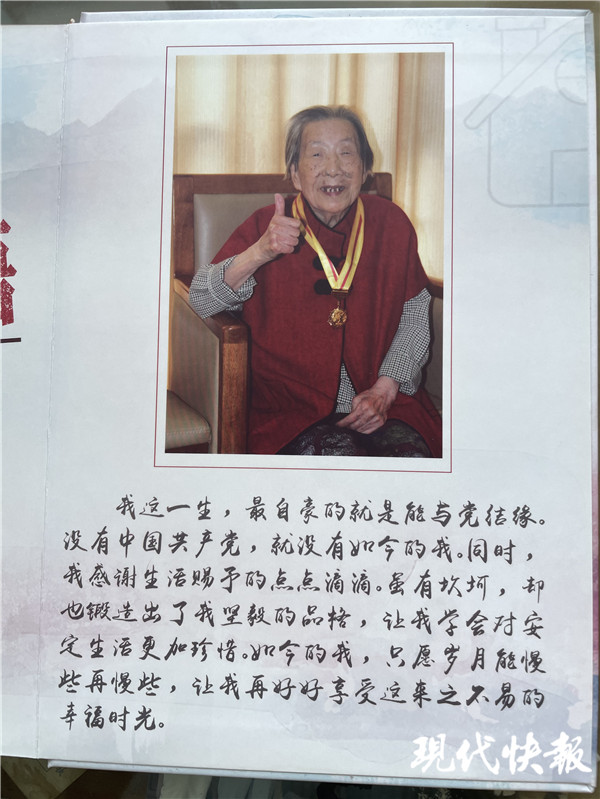 我这一生，最自豪的就是能与党结缘。
没有中国共产党，就没有如今的我。同时，
我感谢生活赐予的点点滴滴。虽有坎坷，却
也锻造出了我坚毅的品格，让我学会对安
定生活更加珍惜。如今的我，只愿岁月能慢
些再慢些，让我再好好享受这来之不易的
幸福时光。
现代快报